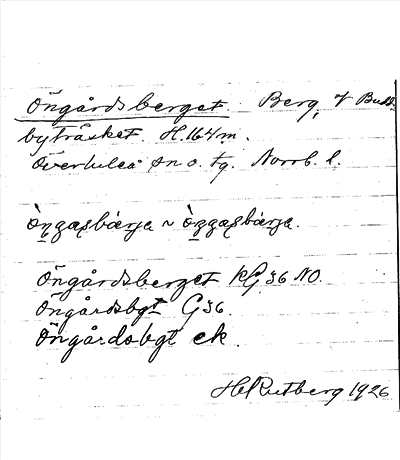 Öngårdsberget. Berg, V Budd-
byträsket. H. 164 m.
Överluleå sn o. tg. Norrb. l.
Öngårdsberget kG 36 NO.
Öngårdsbgt G 36.
Öngårdsbgt ek.
H Rutberg 1926